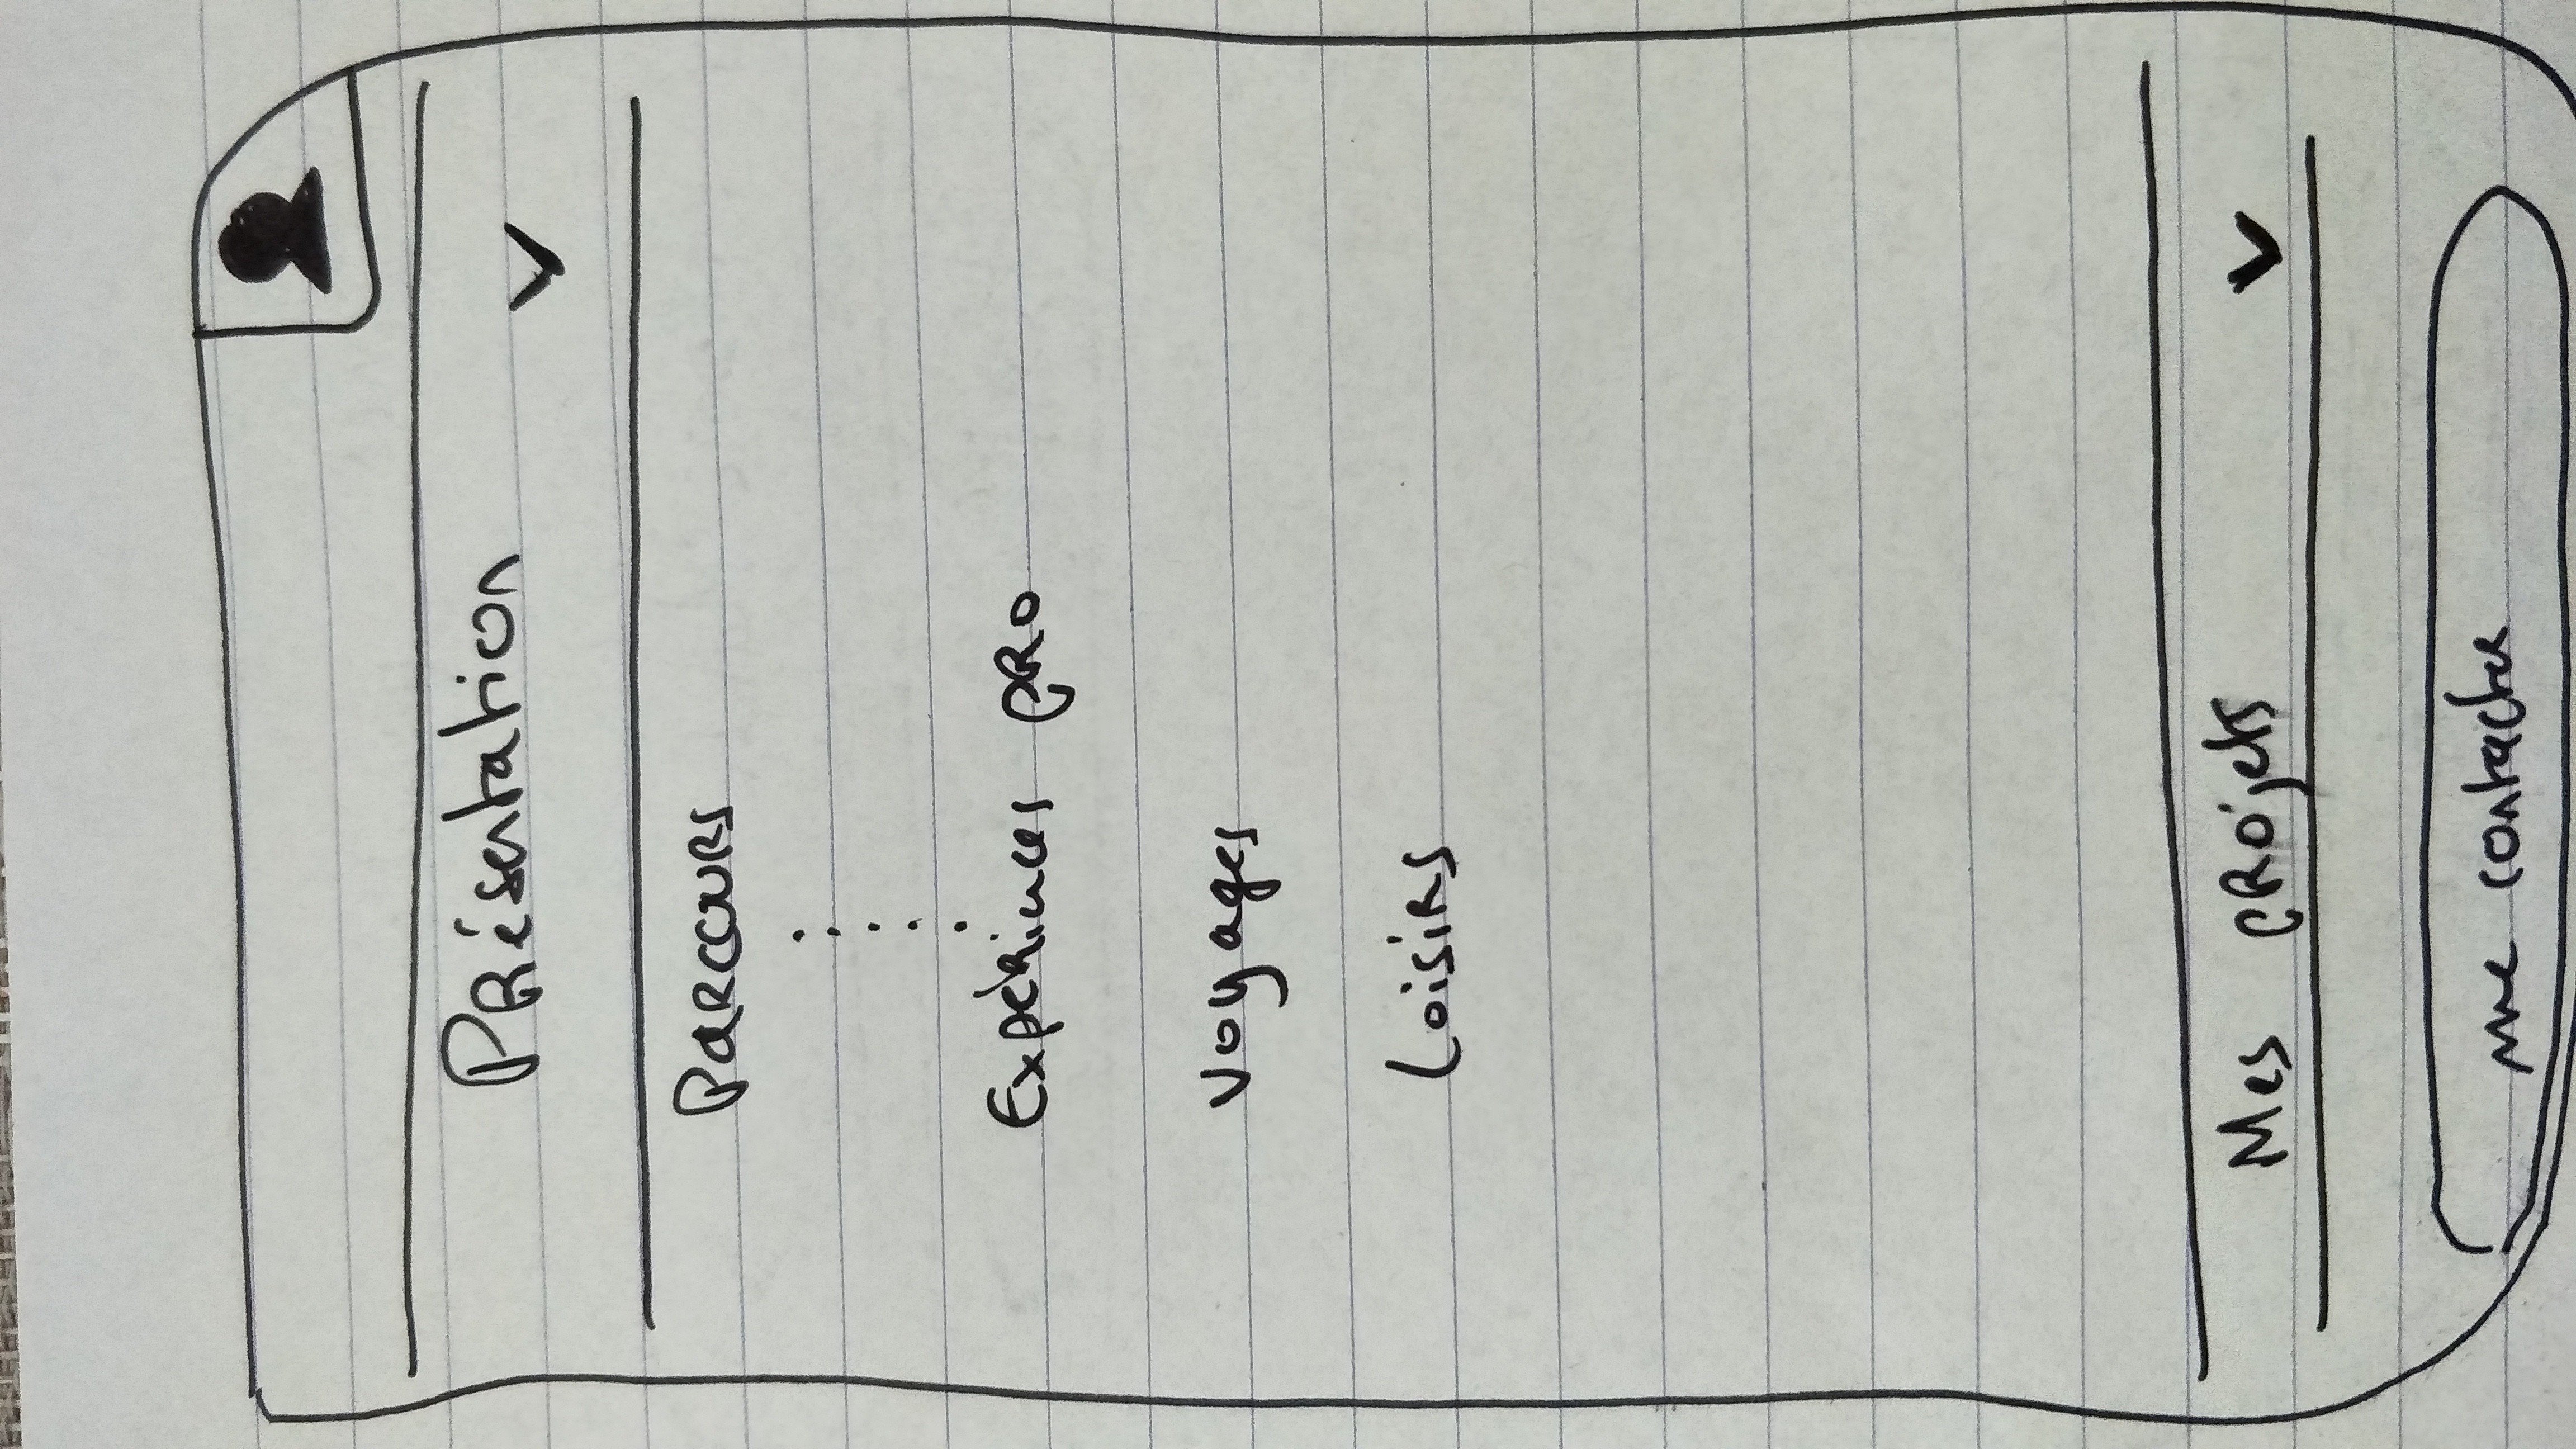 Présentation
Parcours
Expériences pro
Voyages
Loisirs
Mes projets
me contacter